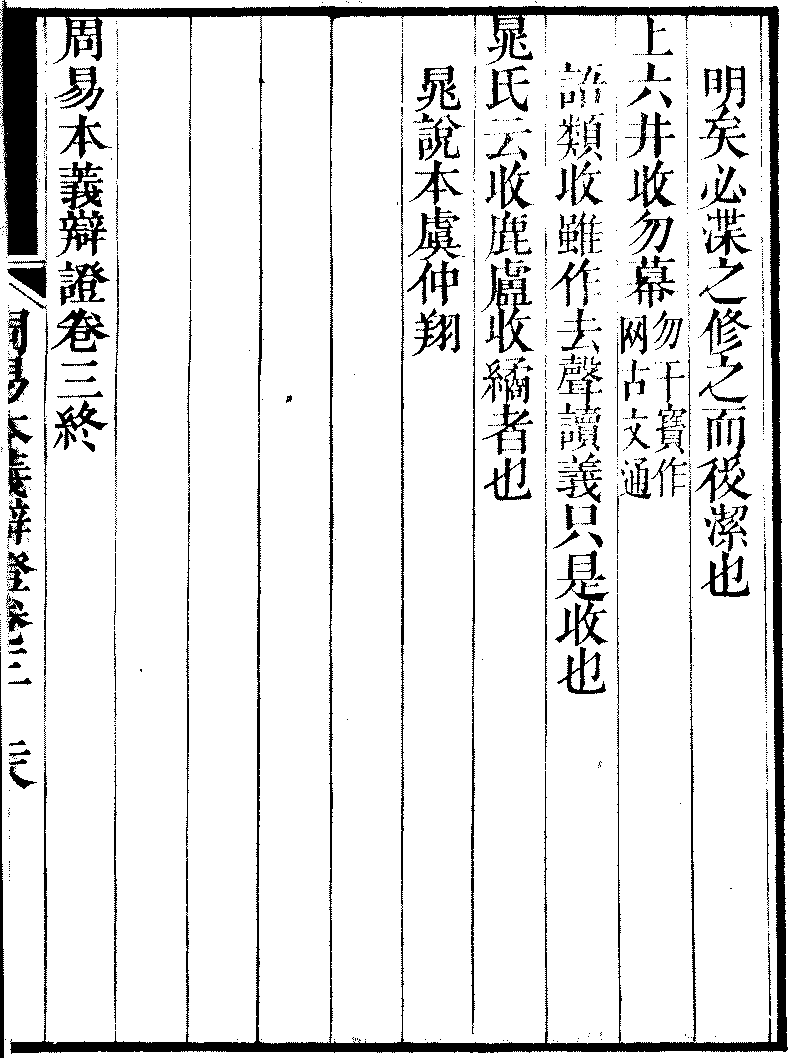 明矣必渫之修之而後潔也
上六井收勿幕勿干寶作网古文通
語類收雖作去聲讀義只是收也
晁氏云收鹿盧收繘者也
晁說本虞仲翔
周易本義辯證卷三終
周易本義辯證卷三